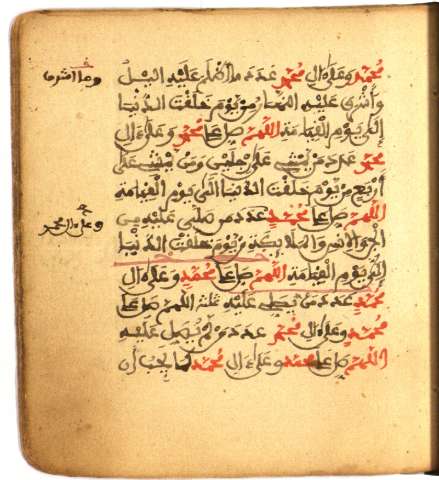 محمد وعلى ال محمد عدد ما اظلم عليه اليل
وأشرق عليه النهار من يوم خلقت الدنيا
إلى يوم القيامة اللهم صل على محمد وعلى ال
محمد عدد من يمشي على رجلين ومن يمشي على
أربع من يوم خلقت الدنيا إلى يوم القيامة
اللهم صل على محمد عدد من صلى عليه من
الجن والانس والملايكة من يوم خلقت الدنيا
إلى يوم القيامة اللهم صل على محمد وعلى ال
محمد عدد من يصلي عليه ثلث اللهم صل على
محمد وعلى ال محمد عدد من لم يصل عليه
اللهم صل على محمد وعلى ال محمد كما يجب أن
وما اشرق
وعلى ال محمد